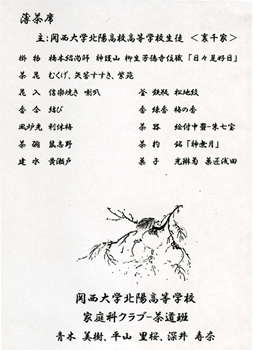 薄茶席
主:関西大学北陽高校高等学校生徒 <裏千家>
掛物 橋本紹尚師 神護山 柳生芳徳寺住職「日々是好日」
茶花 むくげ、矢筈すすき、紫苑
花入 信楽焼き 喇叭 釜 鉄瓶 松地紋
香合 結び 香 練香 梅の香
風炉先 利休梅 茶器 絵付中棗ー朱七宝
茶碗 鼠志野 茶杓 銘「神無月」
建水 黄瀬戸 菓子 光琳菊 菓匠浅田
関西大学北陽高等学校
家庭科クラブー茶道班
青木 美樹、平山 里桜、深井 寿奈